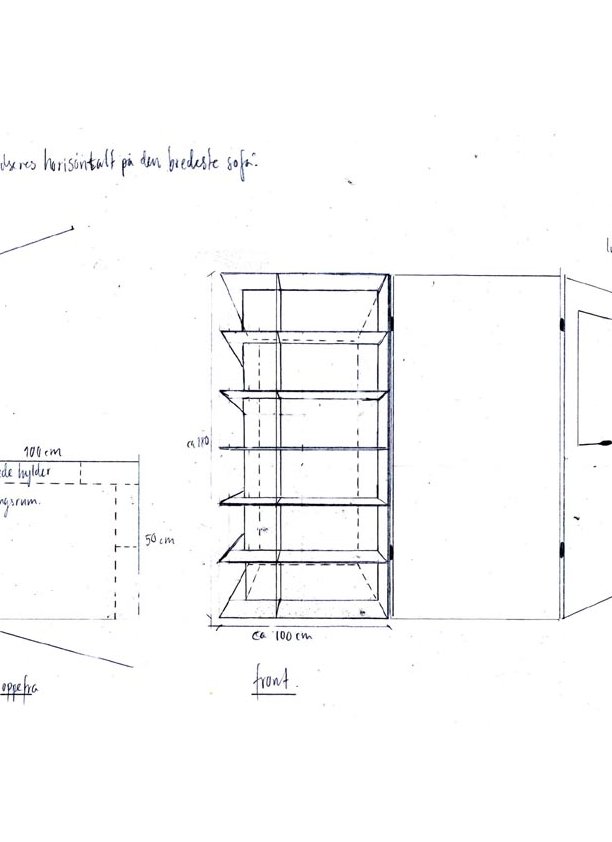 horisontalt på den bredeste sofa.
100 cm
hylder
50 cm
ca 180
ca 100 cm
oppefra
front.